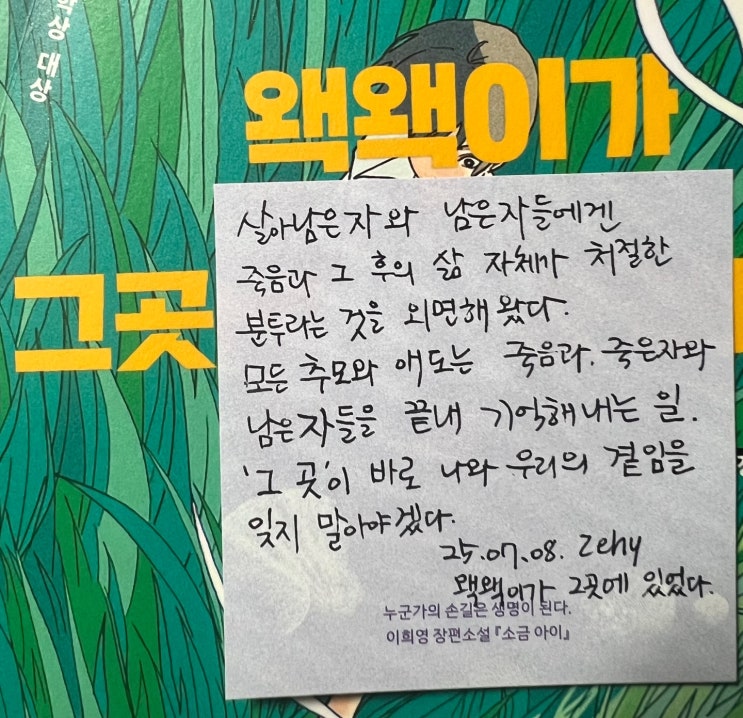 학상 대상
왝왝이가
그곳
살아남은자와 남은자들에겐
죽음과 그 후의 삶 자체가 처절한
분투라는 것을 외면해 왔다.
모든 추모와 애도는 죽음과. 죽은자와
남은자들을 끝내 기억해내는 일.
'그 곳'이 바로 나와 우리의 곁임을
잊지 말아야겠다.
25.07.08. zehy
왝왝이가 그곳에 있었다.
누군가의 손길은 생명이 된다.
이희영 장편소설 『소금 아이』